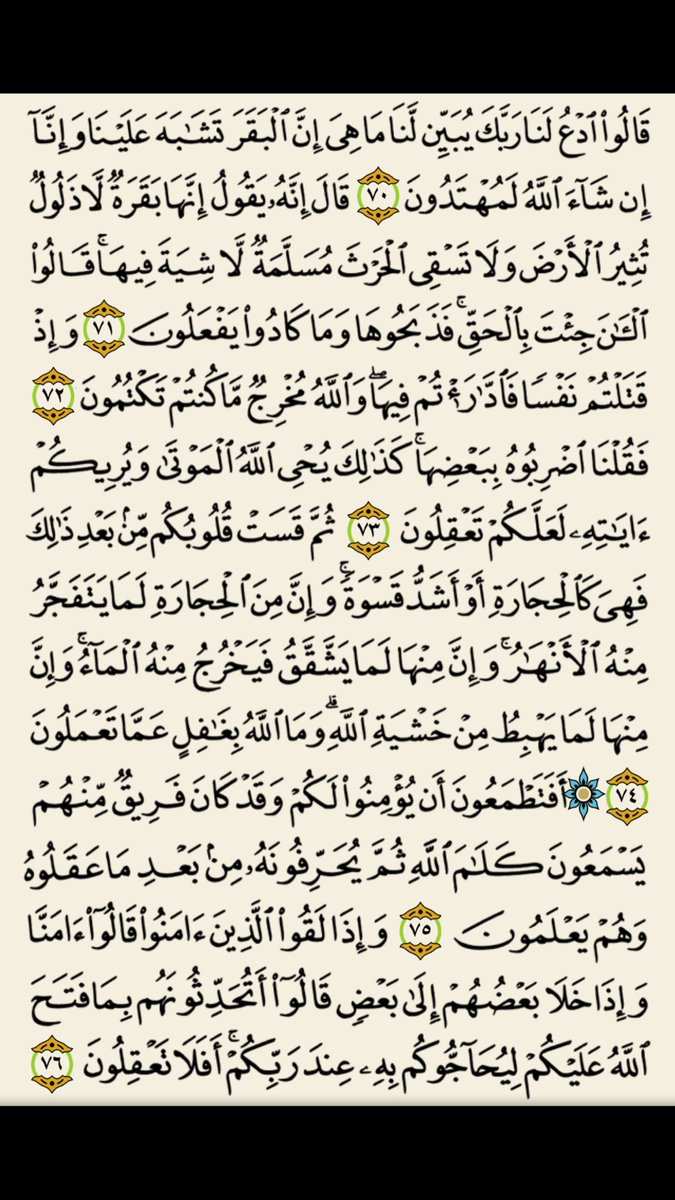 قَالُوا۟ ٱدْعُ لَنَا رَبَّكَ يُبَيِّن لَّنَا مَا هِىَ إِنَّ ٱلْبَقَرَ تَشَـٰبَهَ عَلَيْنَا وَإِنَّآ
إِن شَآءَ ٱللَّهُ لَمُهْتَدُونَ ٧٠ قَالَ إِنَّهُۥ يَقُولُ إِنَّهَا بَقَرَةٌ لَّا ذَلُولٌ
تُثِيرُ ٱلْأَرْضَ وَلَا تَسْقِى ٱلْحَرْثَ مُسَلَّمَةٌ لَّا شِيَةَ فِيهَا ۚ قَالُوا۟
ٱلْـَٔـٰنَ جِئْتَ بِٱلْحَقِّ ۚ فَذَبَحُوهَا وَمَا كَادُوا۟ يَفْعَلُونَ ٧١ وَإِذْ
قَتَلْتُمْ نَفْسًا فَٱدَّٰرَْٰٔتُمْ فِيهَا ۖ وَٱللَّهُ مُخْرِجٌ مَّا كُنتُمْ تَكْتُمُونَ ٧٢
فَقُلْنَا ٱضْرِبُوهُ بِبَعْضِهَا ۚ كَذَٰلِكَ يُحْىِ ٱللَّهُ ٱلْمَوْتَىٰ وَيُرِيكُمْ
ءَايَـٰتِهِۦ لَعَلَّكُمْ تَعْقِلُونَ ٧٣ ثُمَّ قَسَتْ قُلُوبُكُم مِّنۢ بَعْدِ ذَٰلِكَ
فَهِىَ كَٱلْحِجَارَةِ أَوْ أَشَدُّ قَسْوَةً ۚ وَإِنَّ مِنَ ٱلْحِجَارَةِ لَمَا يَتَفَجَّرُ
مِنْهُ ٱلْأَنْهَـٰرُ ۚ وَإِنَّ مِنْهَا لَمَا يَشَّقَّقُ فَيَخْرُجُ مِنْهُ ٱلْمَآءُ ۚ وَإِنَّ
مِنْهَا لَمَا يَهْبِطُ مِنْ خَشْيَةِ ٱللَّهِ ۗ وَمَا ٱللَّهُ بِغَـٰفِلٍ عَمَّا تَعْمَلُونَ
٧٤ أَفَتَطْمَعُونَ أَن يُؤْمِنُوا۟ لَكُمْ وَقَدْ كَانَ فَرِيقٌ مِّنْهُمْ
يَسْمَعُونَ كَلَـٰمَ ٱللَّهِ ثُمَّ يُحَرِّفُونَهُۥ مِنۢ بَعْدِ مَا عَقَلُوهُ
وَهُمْ يَعْلَمُونَ ٧٥ وَإِذَا لَقُوا۟ ٱلَّذِينَ ءَامَنُوا۟ قَالُوٓا۟ ءَامَنَّا
وَإِذَا خَلَا بَعْضُهُمْ إِلَىٰ بَعْضٍ قَالُوٓا۟ أَتُحَدِّثُونَهُم بِمَا فَتَحَ
ٱللَّهُ عَلَيْكُمْ لِيُحَآجُّوكُم بِهِۦ عِندَ رَبِّكُمْ ۚ أَفَلَا تَعْقِلُونَ ٧٦